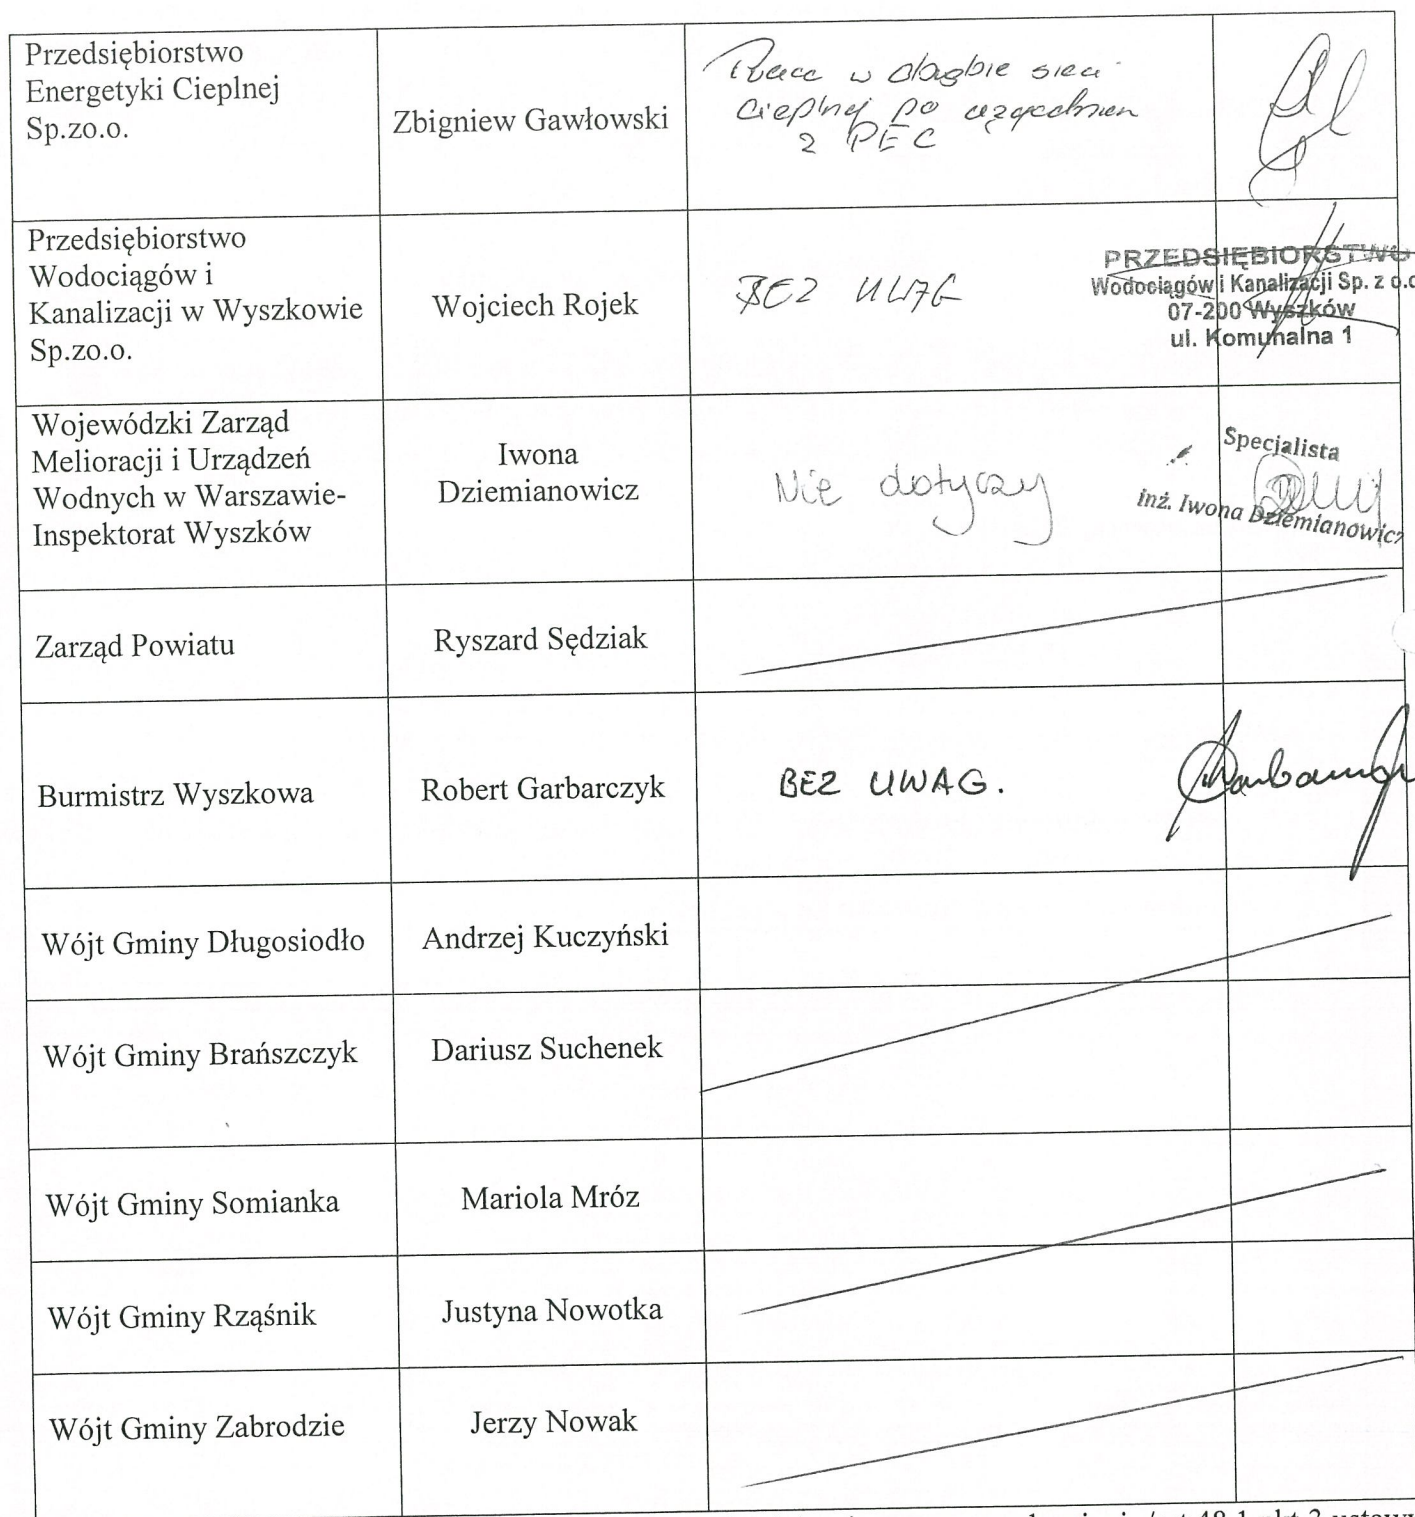 Przedsiębiorstwo
Energetyki Cieplnej
Sp.zo.o.
Zbigniew Gawłowski
Prace w obrębie sieci
cieplnej po uzgodnien
z PEC
Przedsiębiorstwo
Wodociągów i
Kanalizacji w Wyszkowie
Sp.zo.o.
Wojciech Rojek
BEZ UWAG
PRZEDSIĘBIORSTWO
Wodociągów i Kanalizacji Sp. z o.o
07-200 Wyszków
ul. Komunalna 1
Wojewódzki Zarząd
Melioracji i Urządzeń
Wodnych w Warszawie-
Inspektorat Wyszków
Iwona
Dziemianowicz
Nie dotyczy
Specjalista
inż. Iwona Dziemianowicz
Zarząd Powiatu
Ryszard Sędziak
Burmistrz Wyszkowa
Robert Garbarczyk
BEZ UWAG.
Wójt Gminy Długosiodło
Andrzej Kuczyński
Wójt Gminy Brańszczyk
Dariusz Suchenek
Wójt Gminy Somianka
Mariola Mróz
Wójt Gminy Rząśnik
Justyna Nowotka
Wójt Gminy Zabrodzie
Jerzy Nowak